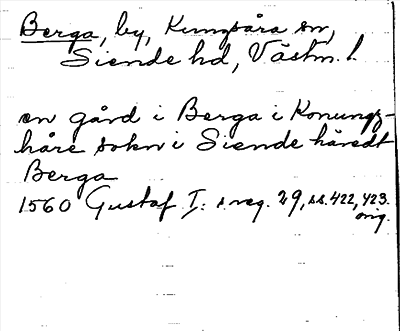 Berga, by, Kungsåra sn,
Siende hd, Västm. l.
en gård i Berga i Konungz-
håre sokn i Siende häredt
Berga
1560 Gustaf I:s reg. 29, ss. 422, 423.
orig.